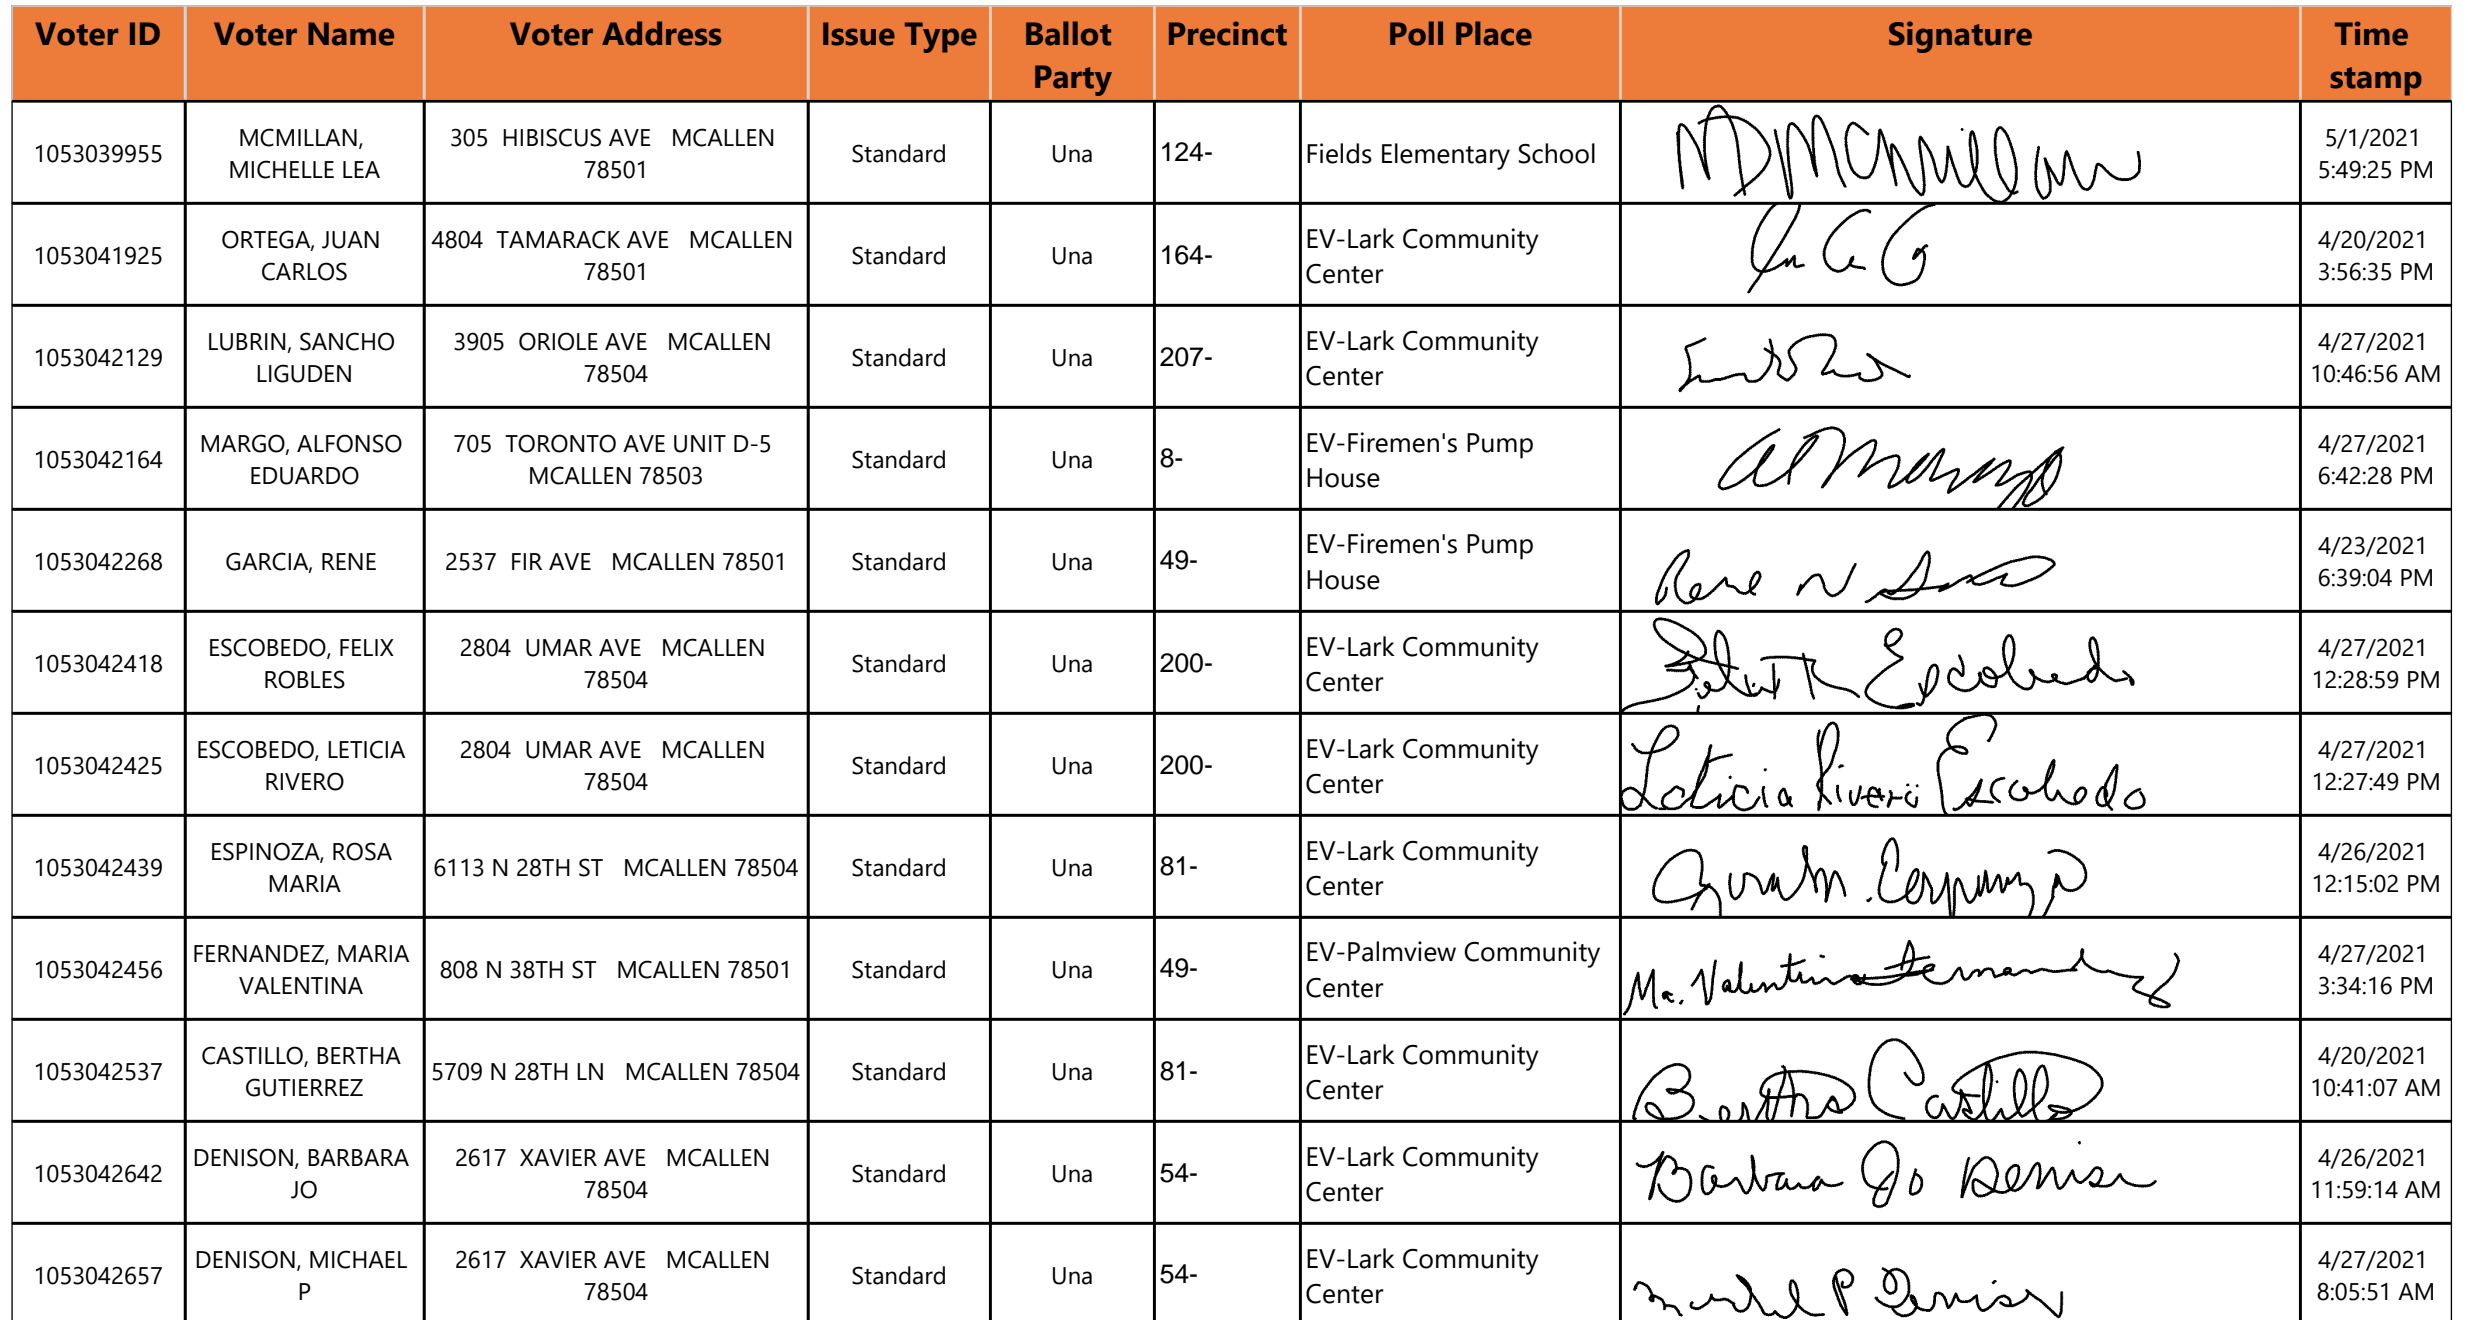 Voter ID Voter Name Voter Address Issue Type Ballot Party Precinct Poll Place Signature Time stamp
1053039955 MCMILLAN, MICHELLE LEA 305 HIBISCUS AVE MCALLEN 78501 Standard Una 124- Fields Elementary School McMillan 5/1/2021 5:49:25 PM
1053041925 ORTEGA, JUAN CARLOS 4804 TAMARACK AVE MCALLEN 78501 Standard Una 164- EV-Lark Community Center 4/20/2021 3:56:35 PM
1053042129 LUBRIN, SANCHO LIGUDEN 3905 ORIOLE AVE MCALLEN 78504 Standard Una 207- EV-Lark Community Center 4/27/2021 10:46:56 AM
1053042164 MARGO, ALFONSO EDUARDO 705 TORONTO AVE UNIT D-5 MCALLEN 78503 Standard Una 8- EV-Firemen's Pump House Al Margo 4/27/2021 6:42:28 PM
1053042268 GARCIA, RENE 2537 FIR AVE MCALLEN 78501 Standard Una 49- EV-Firemen's Pump House Rene N 4/23/2021 6:39:04 PM
1053042418 ESCOBEDO, FELIX ROBLES 2804 UMAR AVE MCALLEN 78504 Standard Una 200- EV-Lark Community Center Felix R Escobedo 4/27/2021 12:28:59 PM
1053042425 ESCOBEDO, LETICIA RIVERO 2804 UMAR AVE MCALLEN 78504 Standard Una 200- EV-Lark Community Center Leticia Rivero Escobedo 4/27/2021 12:27:49 PM
1053042439 ESPINOZA, ROSA MARIA 6113 N 28TH ST MCALLEN 78504 Standard Una 81- EV-Lark Community Center Rosa M. Espinoza 4/26/2021 12:15:02 PM
1053042456 FERNANDEZ, MARIA VALENTINA 808 N 38TH ST MCALLEN 78501 Standard Una 49- EV-Palmview Community Center Ma. Valentina Fernandez 4/27/2021 3:34:16 PM
1053042537 CASTILLO, BERTHA GUTIERREZ 5709 N 28TH LN MCALLEN 78504 Standard Una 81- EV-Lark Community Center Bertha Castillo 4/20/2021 10:41:07 AM
1053042642 DENISON, BARBARA JO 2617 XAVIER AVE MCALLEN 78504 Standard Una 54- EV-Lark Community Center Barbara Jo Denison 4/26/2021 11:59:14 AM
1053042657 DENISON, MICHAEL P 2617 XAVIER AVE MCALLEN 78504 Standard Una 54- EV-Lark Community Center Michael P Denison 4/27/2021 8:05:51 AM